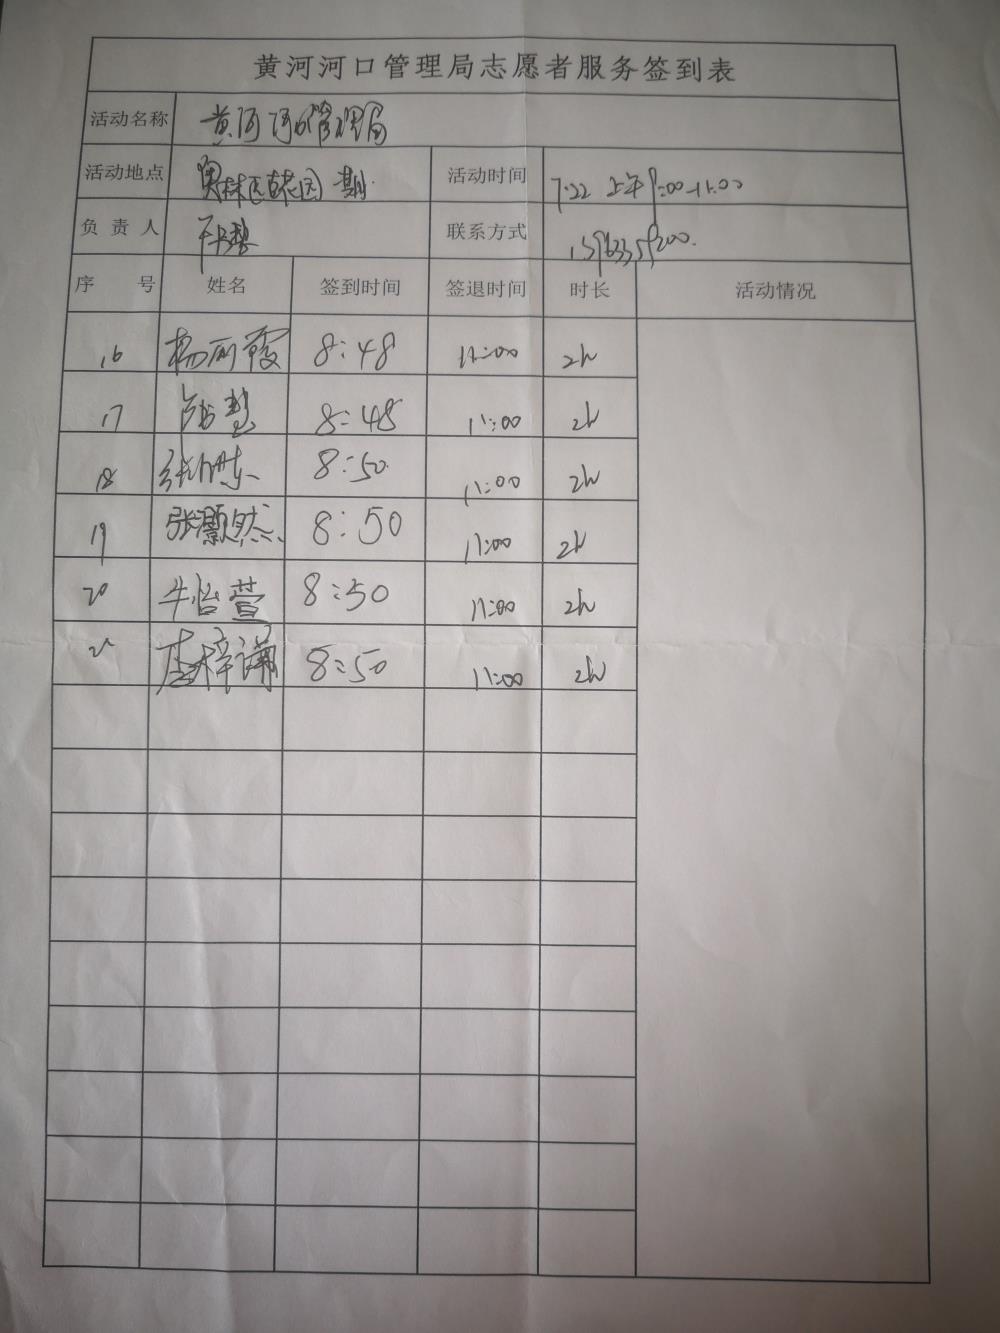 黄河河口管理局志愿者服务签到表
活动名称 黄河河口管理局
活动地点 期 活动时间 7.22 上午9:00-11:00
负责人 联系方式
序号 姓名 签到时间 签退时间 时长 活动情况
16 杨丽霞 8:48 11:00 2h
17 8:48 11:00 2h
18 8:50 11:00 2h
19 张灏然 8:50 11:00 2h
20 牛怡萱 8:50 11:00 2h
梓谦 8:50 11:00 2h